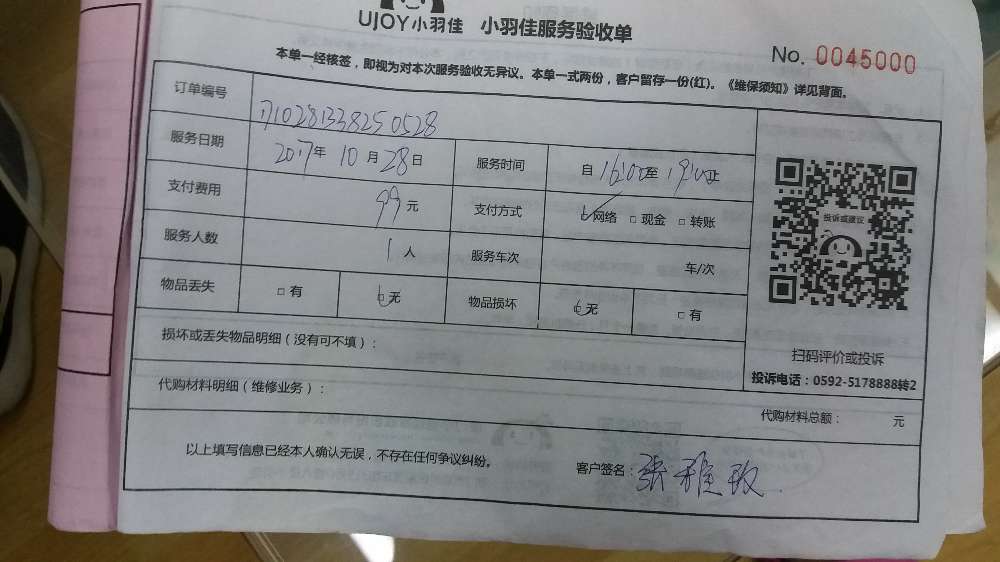 UJOY小羽佳 小羽佳服务验收单
No. 0045000
本单一经核签，即视为对本次服务验收无异议。本单一式两份，客户留存一份(红)。《维保须知》详见背面。
订单编号 1710281338250528
服务日期 2017年 10月 28日 服务时间 自 16:00至 19:00止
支付费用 99元 支付方式 网络 □ 现金 □ 转账
服务人数 1人 服务车次 车/次
物品丢失 □ 有 无 物品损坏 无 □ 有
投诉或建议
扫码评价或投诉
投诉电话：0592-5178888转2
损坏或丢失物品明细（没有可不填）：
代购材料明细（维修业务）：
代购材料总额： 元
以上填写信息已经本人确认无误，不存在任何争议纠纷。 客户签名：张雅玫